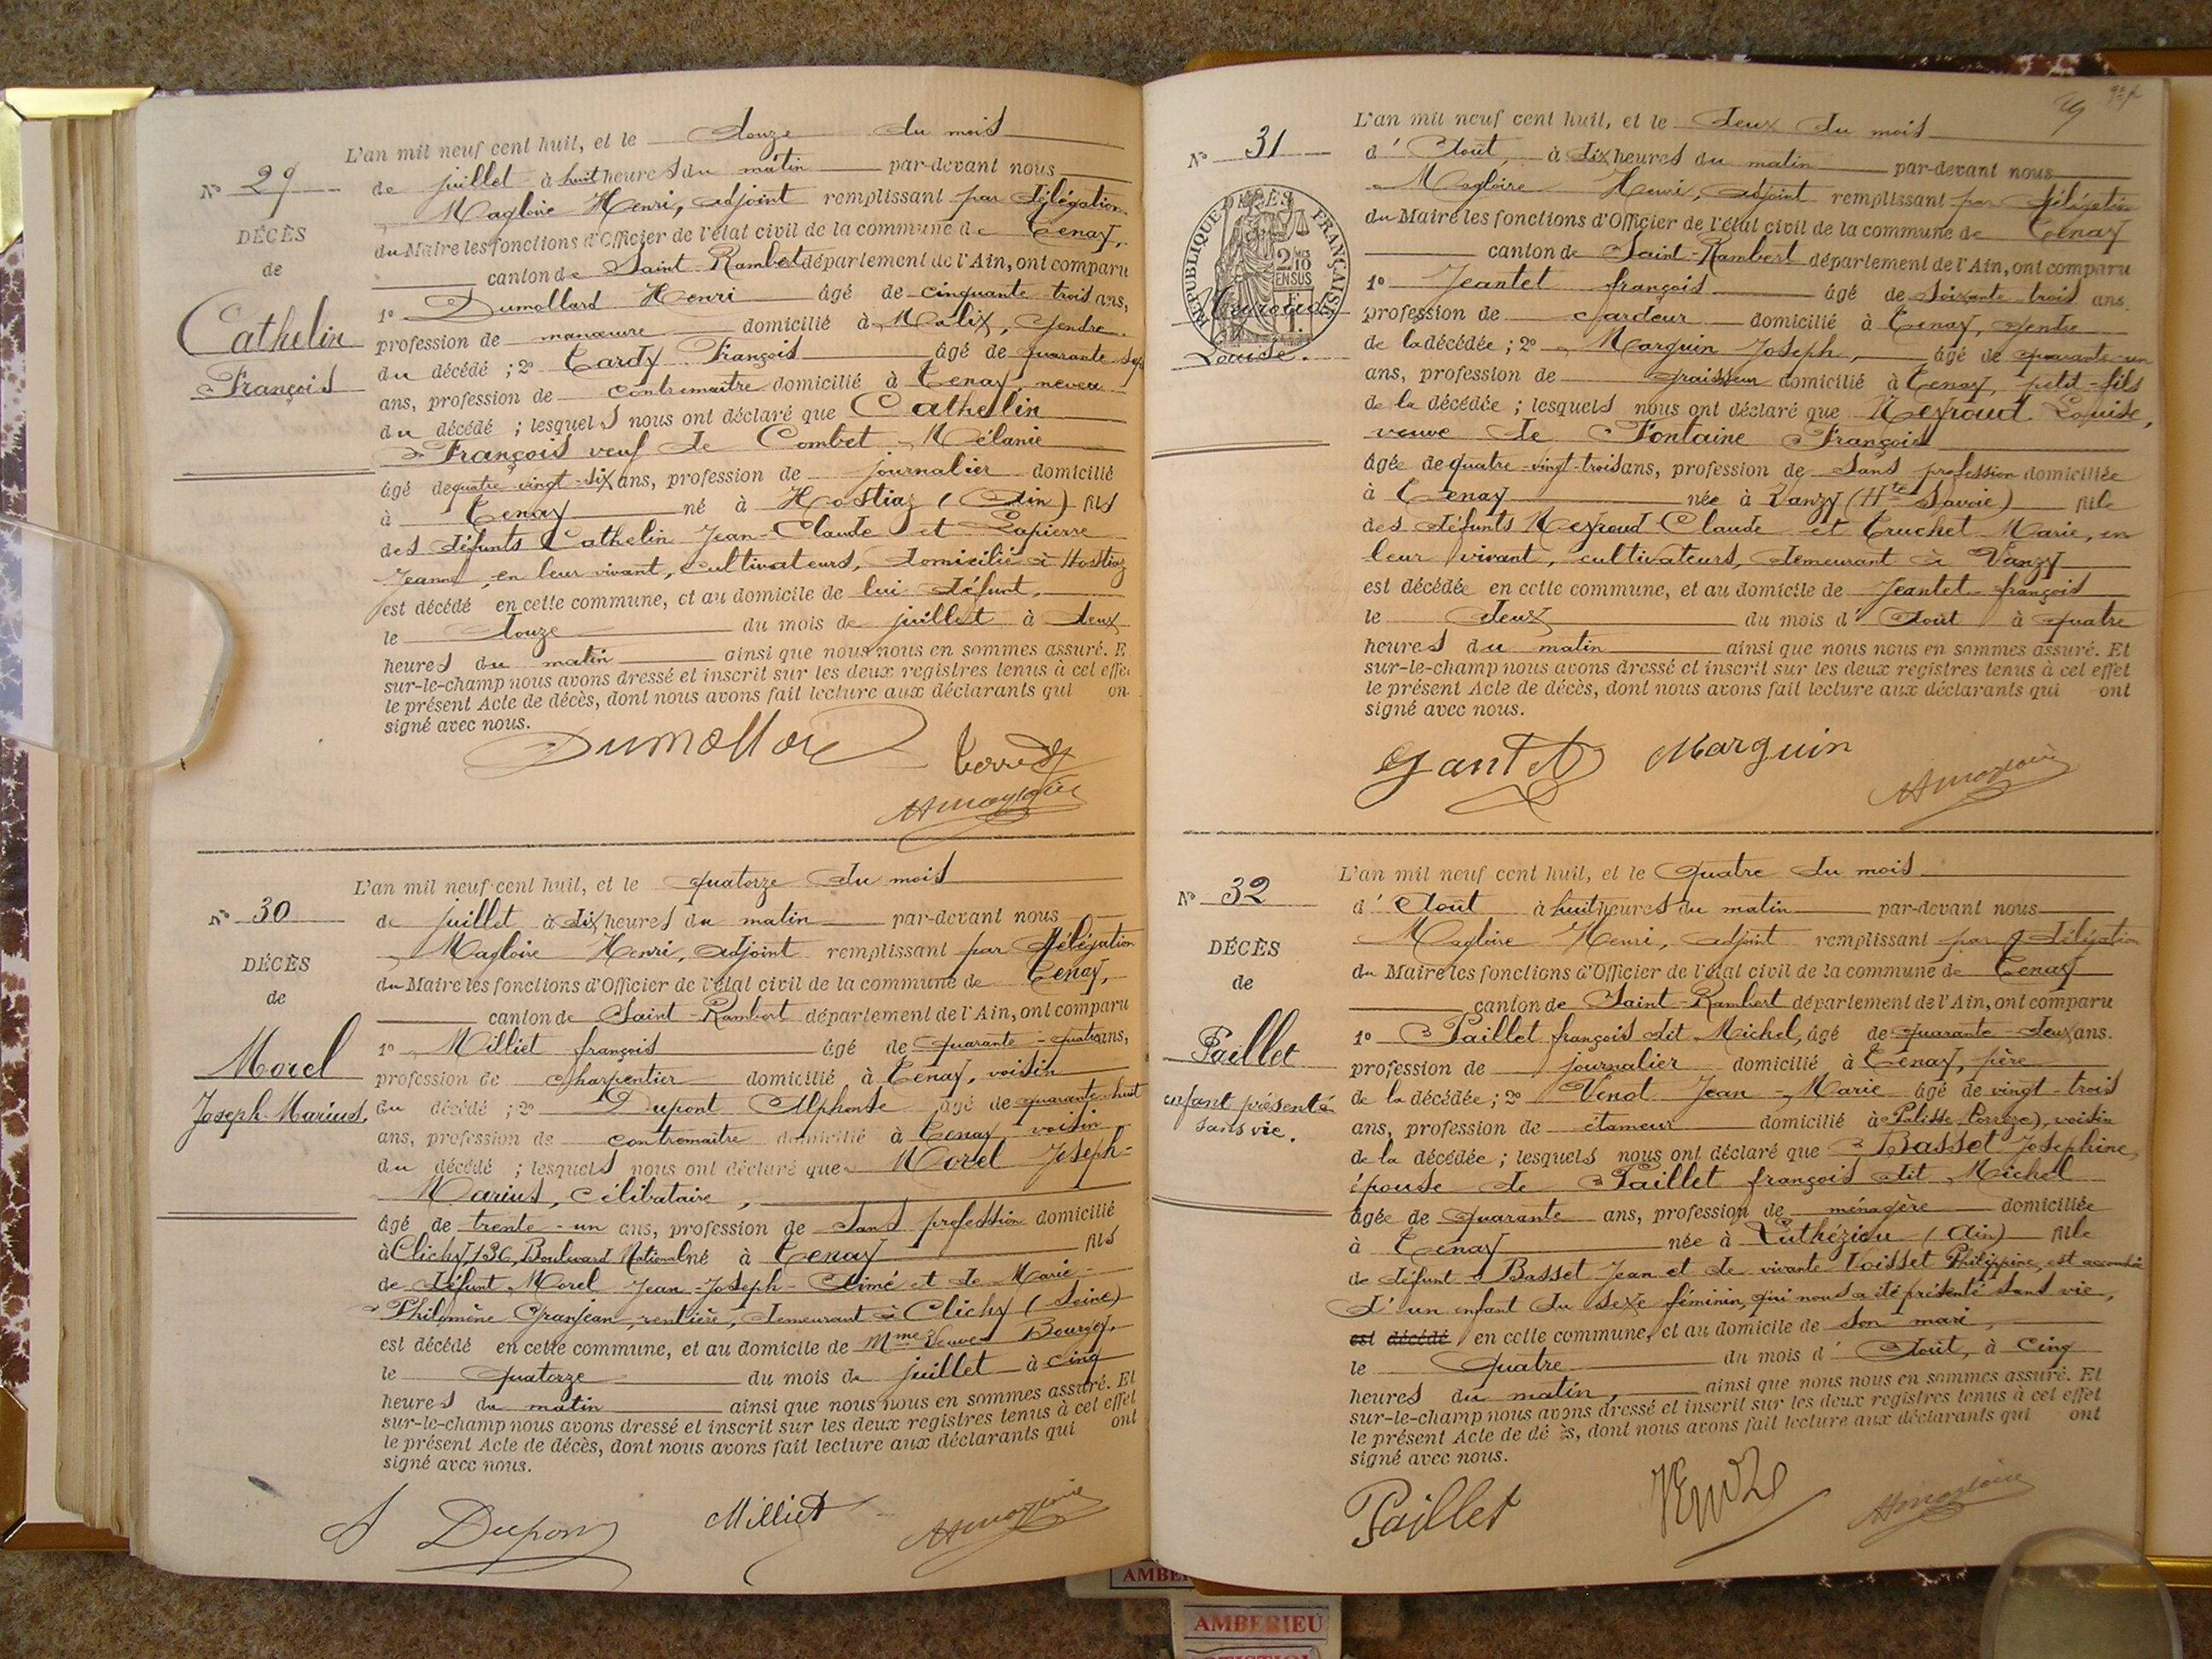 L'an mil neuf cent huit, et le douze du mois
No 29
de juillet à huit heures du matin par-devant nous
Magloire Henri, adjoint remplissant par délégation
DÉCÈS
du Maire les fonctions d'Officier de l'état civil de la commune de Tenay,
de
canton de Saint-Rambert département de l'Ain, ont comparu
Cathelin
François
1º Dumollard Henri âgé de cinquante-trois ans,
profession de manœuvre domicilié à Malix, gendre
du décédé ; 2º Tardy François âgé de quarante sept
ans, profession de contremaître domicilié à Tenay, neveu
du décédé ; lesquels nous ont déclaré que Cathelin
François veuf de Combet Mélanie
âgé de quatre-vingt-six ans, profession de journalier domicilié
à Tenay né à Hostiaz (Ain) fils
des défunts Cathelin Jean-Claude et Lapierre
Jeanne, en leur vivant, cultivateurs, domicilié à Hostiaz
est décédé en cette commune, et au domicile de lui défunt,
le douze du mois de juillet à deux
heures du matin ainsi que nous nous en sommes assuré. E
sur-le-champ nous avons dressé et inscrit sur les deux registres tenus à cel effe
le présent Acte de décès, dont nous avons fait lecture aux déclarants qui on
signé avec nous.
L'an mil neuf cent huit, et le quatorze du mois
No 30
de juillet à dix heures du matin par-devant nous
Magloire Henri, adjoint remplissant par délégation
DÉCÈS
du Maire les fonctions d'Officier de l'état civil de la commune de Tenay,
de
canton de Saint-Rambert département de l'Ain, ont comparu
Morel
Joseph-Marius
1º Milliet françois âgé de quarante-quatre ans,
profession de charpentier domicilié à Tenay, voisin
du décédé ; 2º Dupont Alphonse âgé de quarante-huit
ans, profession de contremaître domicilié à Tenay voisin
du décédé ; lesquels nous ont déclaré que Morel Joseph-
Marius, célibataire,
âgé de trente-un ans, profession de sans profession domicilié
à Clichy, 136, Boulevard National né à Tenay fils
de défunt Morel Jean-Joseph-Aimé et de Marie-
Philomène Granjean, rentière, demeurant à Clichy (Seine)
est décédé en cette commune, et au domicile de Mme Veuve Bourgey.
le quatorze du mois de juillet à cinq
heures du matin ainsi que nous nous en sommes assuré. Et
sur-le-champ nous avons dressé et inscrit sur les deux registres tenus à cet effet
le présent Acte de décès, dont nous avons fait lecture aux déclarants qui ont
signé avec nous.
Dupont Milliet
L'an mil neuf cent huit, et le deux du mois
No 31
d'Août, à dix heures du matin par-devant nous
Magloire Henri, adjoint remplissant par délégation
RÉPUBLIQUE FRANÇAISE
du Maire les fonctions d'Officier de l'état civil de la commune de Tenay
canton de Saint-Rambert département de l'Ain, ont comparu
2/10 EN SUS
Neyroud
Louise.
1º Jeantet françois âgé de soixante trois ans
profession de cardeur domicilié à Tenay, gendre
de la décédée ; 2º Marguin Joseph, âgé de quarante-un
ans, profession de graisseur domicilié à Tenay, petit-fils
de la décédée ; lesquels nous ont déclaré que Neyroud Louise,
veuve de Fontaine François
âgée de quatre-vingt-trois ans, profession de sans profession domiciliée
à Tenay née à Vanzy (Hte Savoie) fille
des défunts Neyroud Claude et Truchet Marie, en
leur vivant, cultivateurs, demeurant à Vanzy
est décédée en cette commune, et au domicile de Jeantet françois
le deux du mois d'Août à quatre
heures du matin ainsi que nous nous en sommes assuré. Et
sur-le-champ nous avons dressé et inscrit sur les deux registres tenus à cel effet
le présent Acte de décès, dont nous avons fait lecture aux déclarants qui ont
signé avec nous.
Marguin
L'an mil neuf cent huit, et le quatre du mois
No 32
d'Août à huit heures du matin par-devant nous
Magloire Henri, adjoint remplissant par délégation
DÉCÈS
du Maire les fonctions d'Officier de l'état civil de la commune de Tenay
de
canton de Saint-Rambert département de l'Ain, ont comparu
Paillet
enfant présenté
sans vie.
1º Paillet françois dit Michel, âgé de quarante-deux ans.
profession de journalier domicilié à Tenay, père
de la décédée ; 2º Venot Jean-Marie âgé de vingt-trois
ans, profession de étameur domicilié à Palisse (Corrèze), voisin
de la décédée ; lesquels nous ont déclaré que Basset Joséphine,
épouse de Paillet françois dit Michel
âgée de quarante ans, profession de ménagère domiciliée
à Tenay née à Luthézieu (Ain) fille
de défunt Basset Jean et de vivante Voisset Philippine, est accouchée
d'un enfant du sexe féminin, qui nous a été présenté sans vie,
est décédé en cette commune, et au domicile de son mari,
le quatre du mois d'Août, à cinq
heures du matin, ainsi que nous nous en sommes assuré. Et
sur-le-champ nous avons dressé et inscrit sur les deux registres tenus à cel effet
le présent Acte de dé ès, dont nous avons fait lecture aux déclarants qui ont
signé avec nous.
Paillet
AMBE
AMBERIEU